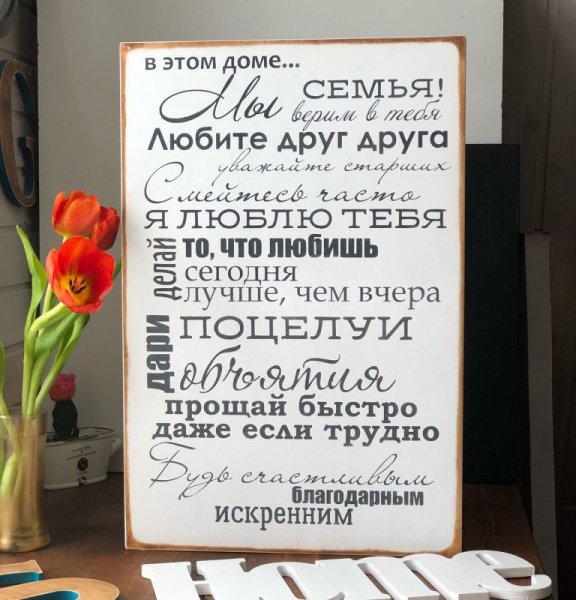 в этом доме...
Мы СЕМЬЯ!
верим в тебя
Любите друг друга
уважайте старших
Смейтесь часто
Я ЛЮБЛЮ ТЕБЯ
делай то, что любишь
сегодня
лучше, чем вчера
дари ПОЦЕЛУИ
объятия
прощай быстро
даже если трудно
Будь счастливым
благодарным
искренним